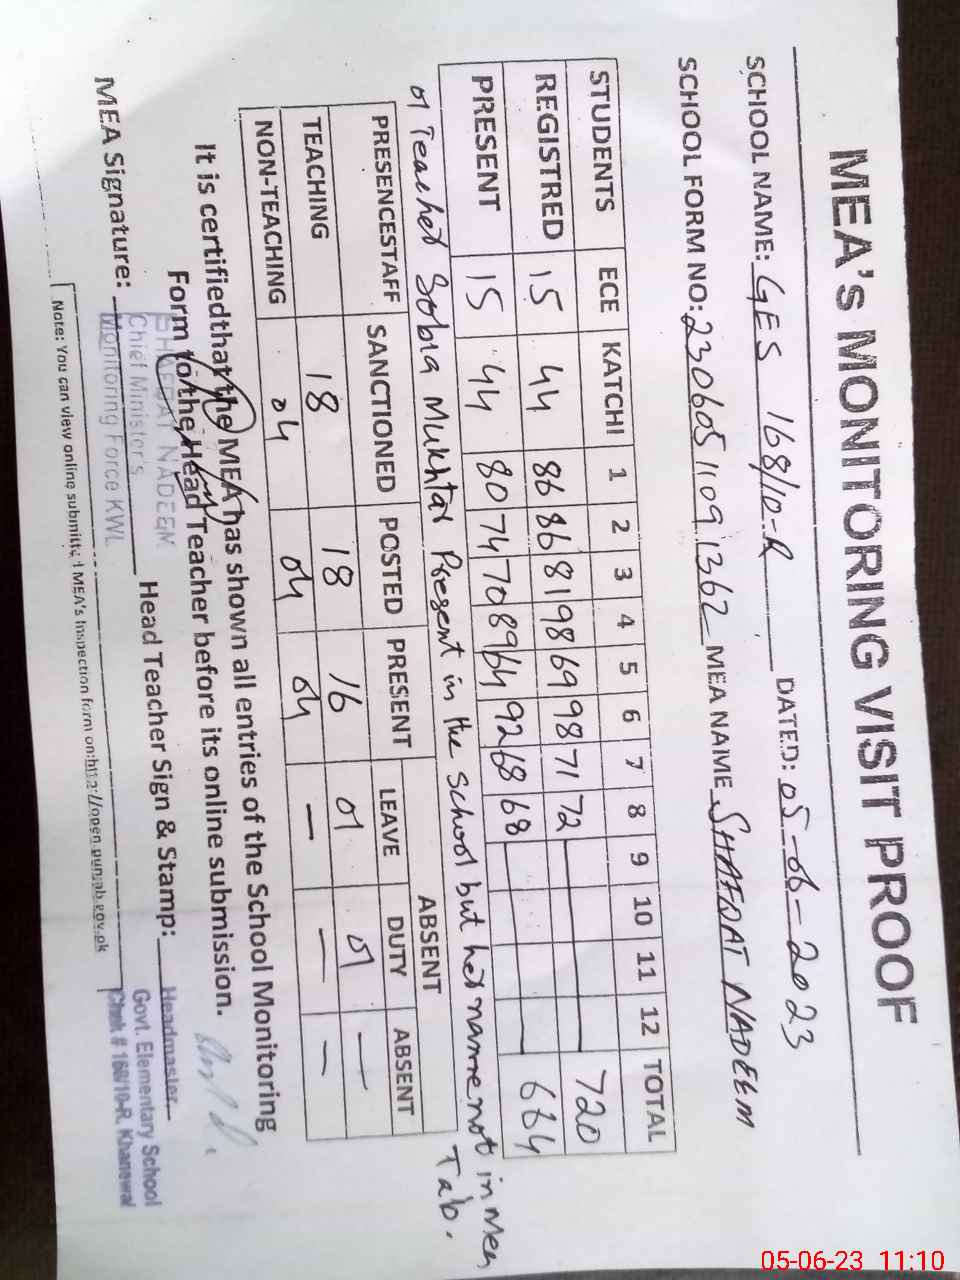 MEA's MONITORING VISIT PROOF
SCHOOL NAME: GES 168/10-R DATED: 05-06-2023
SCHOOL FORM NO: 23060511091362 MEA NAME SHAFQAT NADEEM
STUDENTS ECE KATCHI 1 2 3 4 5 6 7 8 9 10 11 12 TOTAL
REGISTRED 15 44 86 86 81 98 69 98 71 72 720
PRESENT 15 44 80 74 70 89 64 92 68 68 664
01 Teacher Sobia Mukhtar Present in the school but her name not in Mea Tab.
PRESENCESTAFF SANCTIONED POSTED PRESENT ABSENT
LEAVE DUTY ABSENT
TEACHING 18 18 16 01 01 —
NON-TEACHING 04 04 04 — — —
It is certifiedthat the MEA has shown all entries of the School Monitoring
Form to the Head Teacher before its online submission.
MEA Signature: Head Teacher Sign & Stamp:
SHAFQAT NADEEM
Chief Minister's
Monitoring Force KWL
Headmaster
Govt. Elementary School
Chak # 168/10-R, Khanewal
Note: You can view online submitted MEA's Inspection form on:http://open.punjab.gov.pk
05-06-23 11:10